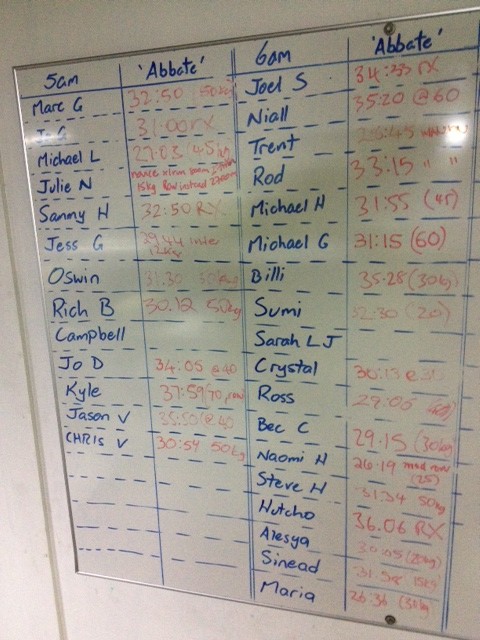 5am 'Abbate' 6am 'Abbate'
Marc G 32:50 50kg
31:00 RX
Michael L 27:03 (45kg)
Julie N
15kg Row instead
Sammy H 32:50 RX
Jess G 29.44
12kg
Oswin 31.30
Rich B 30.12 50kg
Campbell
Jo D 34:05 @ 40
Kyle 37:59 (70
Jason V 35:50 @ 40
CHRIS V 30:54 50kg
Joel S 34:33 RX
Niall 35:20 @ 60
Trent
Rod 33:15 " "
Michael H 31:55 (45)
Michael G 31:15 (60)
Billi 35.28 (30kg)
Sumi 32:30 (20)
Sarah L J
Crystal 30:13 @ 30
Ross 29:06
Bec C 29.15 (30kg)
Naomi H 26:19 mod row
(25)
Steve H 31:34 50kg
Hutcho 36.06 RX
Alesya 30:05 (20kg)
Sinead 31:58 15kg
Maria 26:36 (30kg)